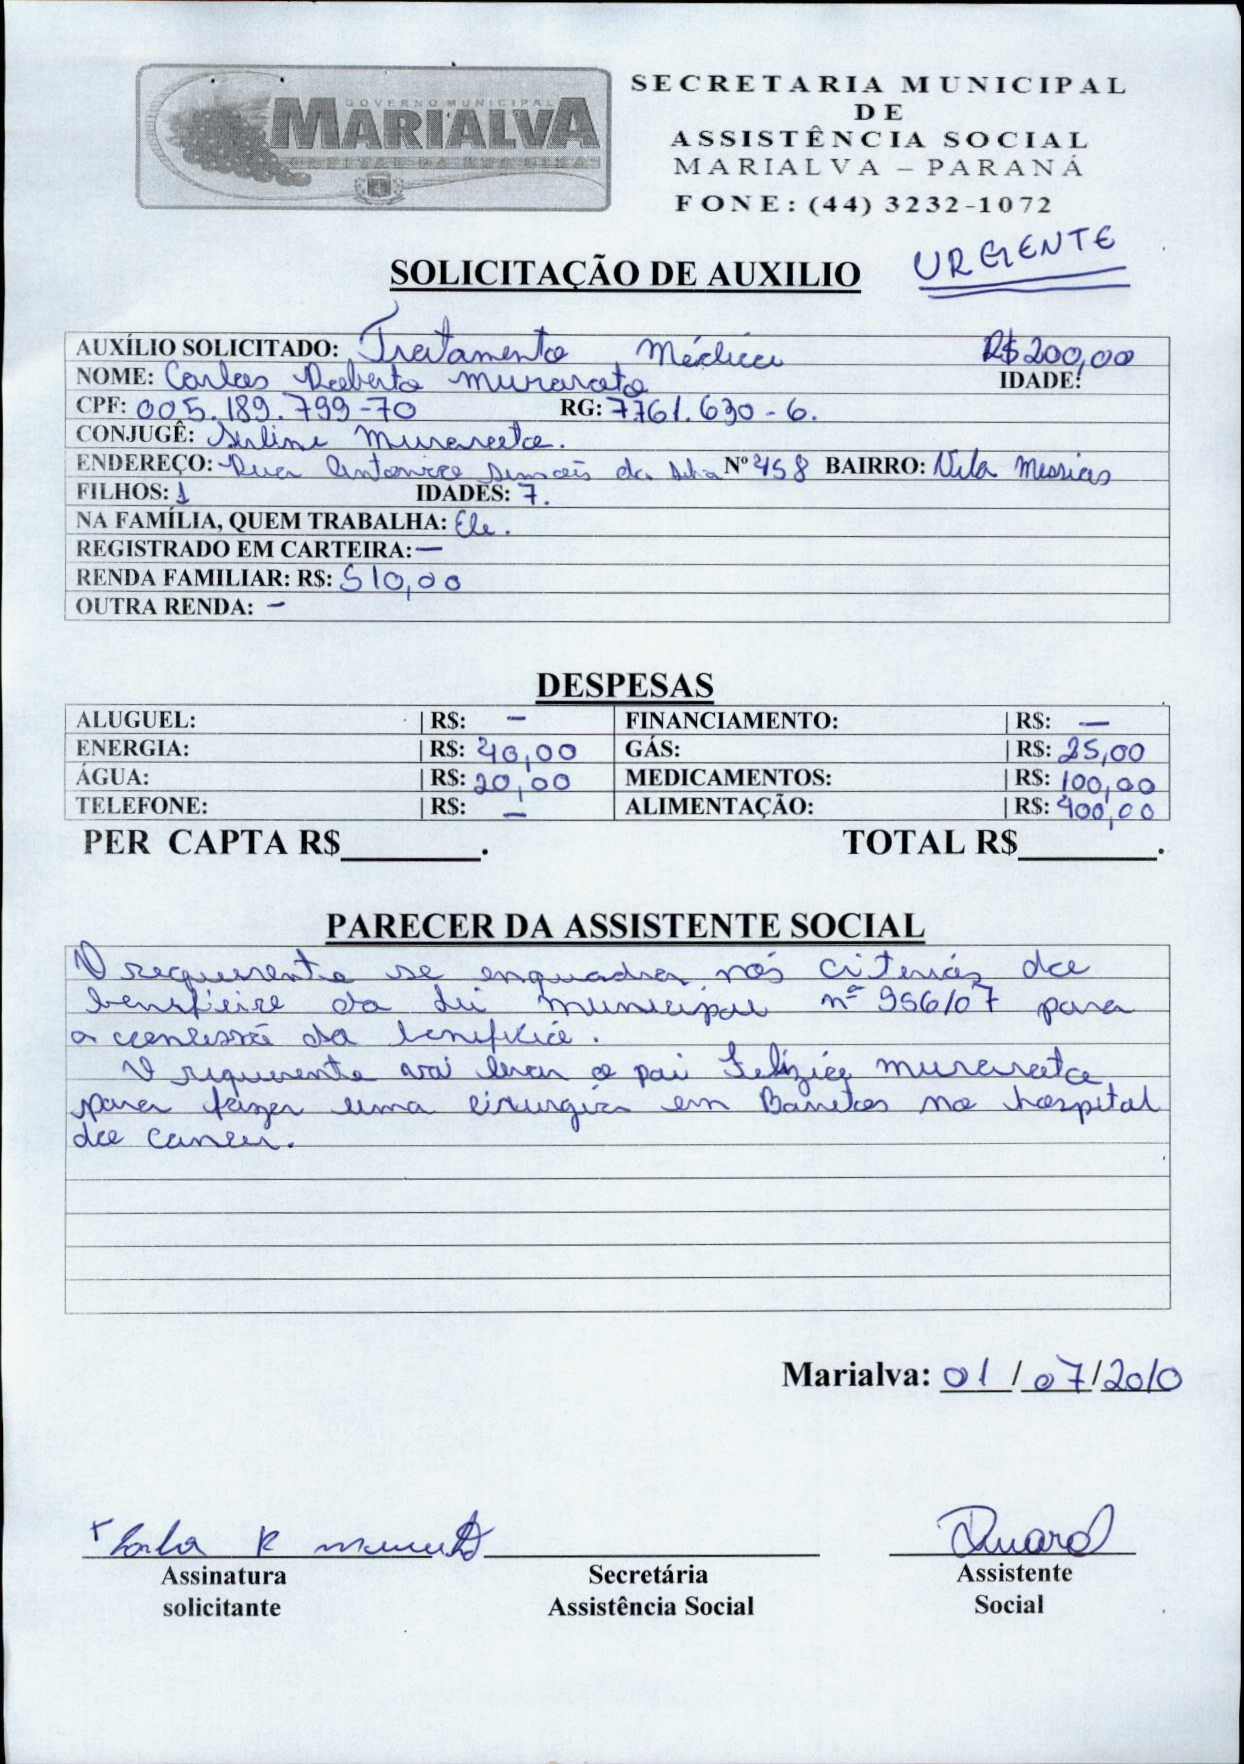 GOVERNO MUNICIPAL
MARIALVA
CAPITAL DA UVA FINA
SECRETARIA MUNICIPAL
DE
ASSISTÊNCIA SOCIAL
MARIALVA – PARANÁ
FONE: (44) 3232-1072
URGENTE
SOLICITAÇÃO DE AUXILIO
AUXÍLIO SOLICITADO: Tratamento Médico R$ 200,00
NOME: Carlos Roberto Muraroto IDADE:
CPF: 005.189.799-70 RG: 7761.630-6.
CONJUGÊ: Muraroto.
ENDEREÇO: Rua Antonio Simões da Silva Nº 458 BAIRRO: Vila Messias
FILHOS: 1 IDADES: 7.
NA FAMÍLIA, QUEM TRABALHA: Ele.
REGISTRADO EM CARTEIRA: —
RENDA FAMILIAR: R$: 510,00
OUTRA RENDA: –
DESPESAS
ALUGUEL: | R$: – FINANCIAMENTO: | R$: —
ENERGIA: | R$: 40,00 GÁS: | R$: 25,00
ÁGUA: | R$: 20,00 MEDICAMENTOS: | R$: 100,00
TELEFONE: | R$: – ALIMENTAÇÃO: | R$: 400,00
PER CAPTA R$________. TOTAL R$________.
PARECER DA ASSISTENTE SOCIAL
O requerente se enquadra nos criterios do
beneficio da Lei Municipal nº 956/07 para
a concessão do beneficio.
O requerente vai levar o pai Muraroto
para fazer uma cirurgia em Barretos no hospital
do cancer.
Marialva: 01/07/2010
Assinatura Secretária Assistente
solicitante Assistência Social Social